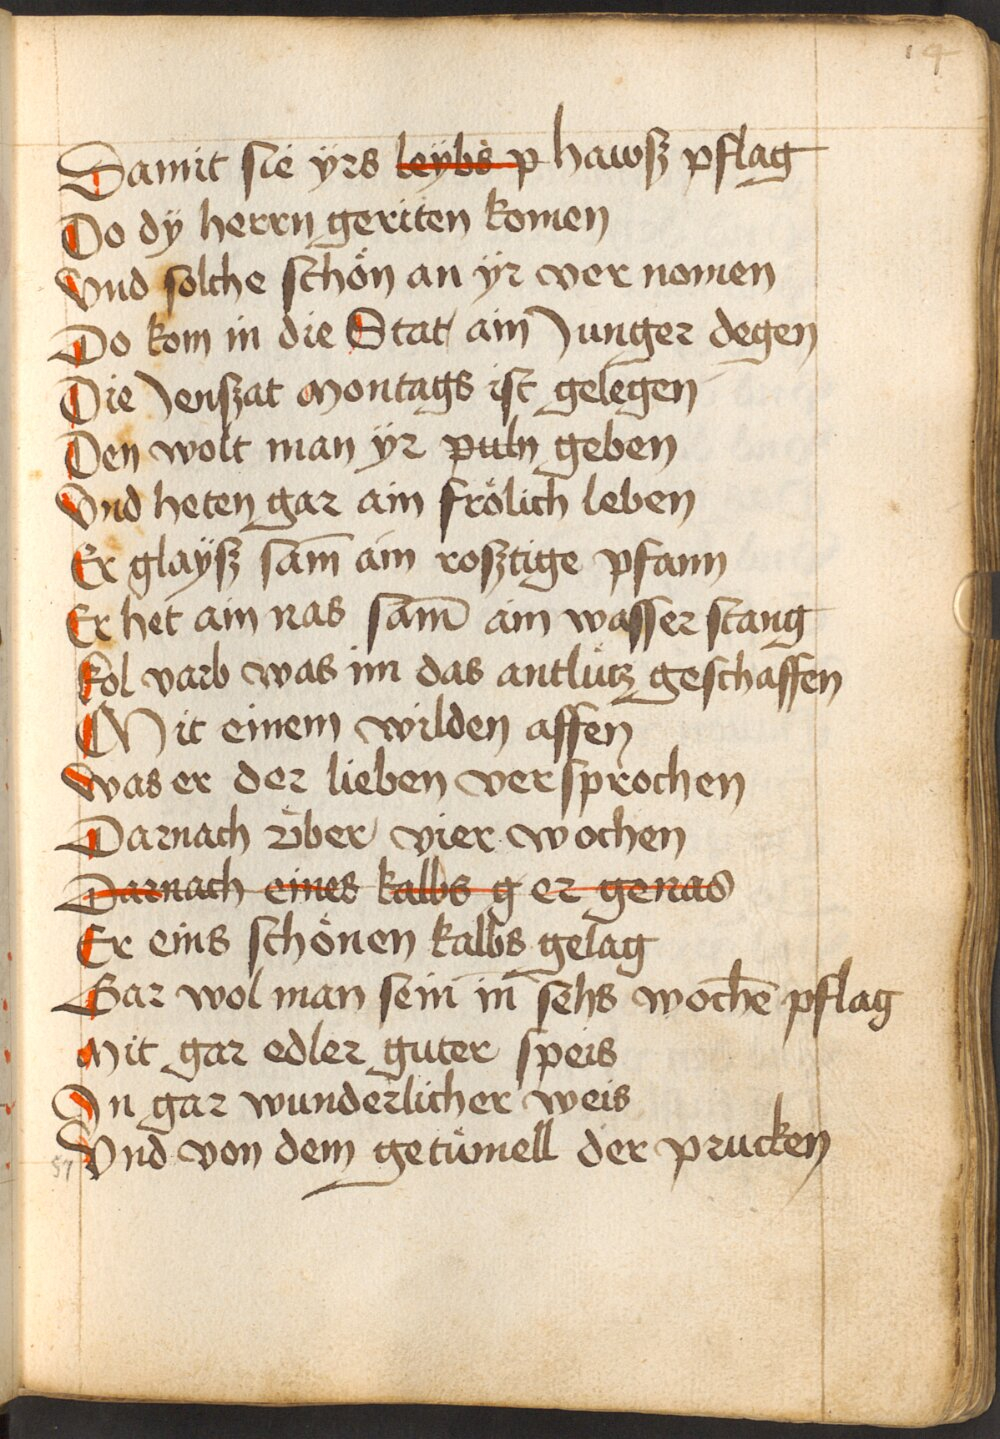 14
Damit sie yrs leybs p hawsz pflag
Do dÿ herrn geriten komen
Vnd solche schön an ÿr ver nomen
Do kom in die Stat ain Junger degen
Die Jenszat Montags ist gelegen
Den wolt man ÿr puln geben
Vnd heten gar ain frölich leben
Er glaÿsz sam̄ ain rosztige pfann
Er het ain nas sam̄ ain wasser stang
kol varb was im das antlütz geschaffen
Mit einem wilden affen
was er der lieben versprochen
Darnach über vier wochen
Darnach eines kalbs g er genas
Er eins schönen kalbs gelag
Gar wol man sein in̄ sehs wochē pflag
Mit gar edler guter speis
In gar wunderlicher weis
57 Vnd von dem getümell der prucken